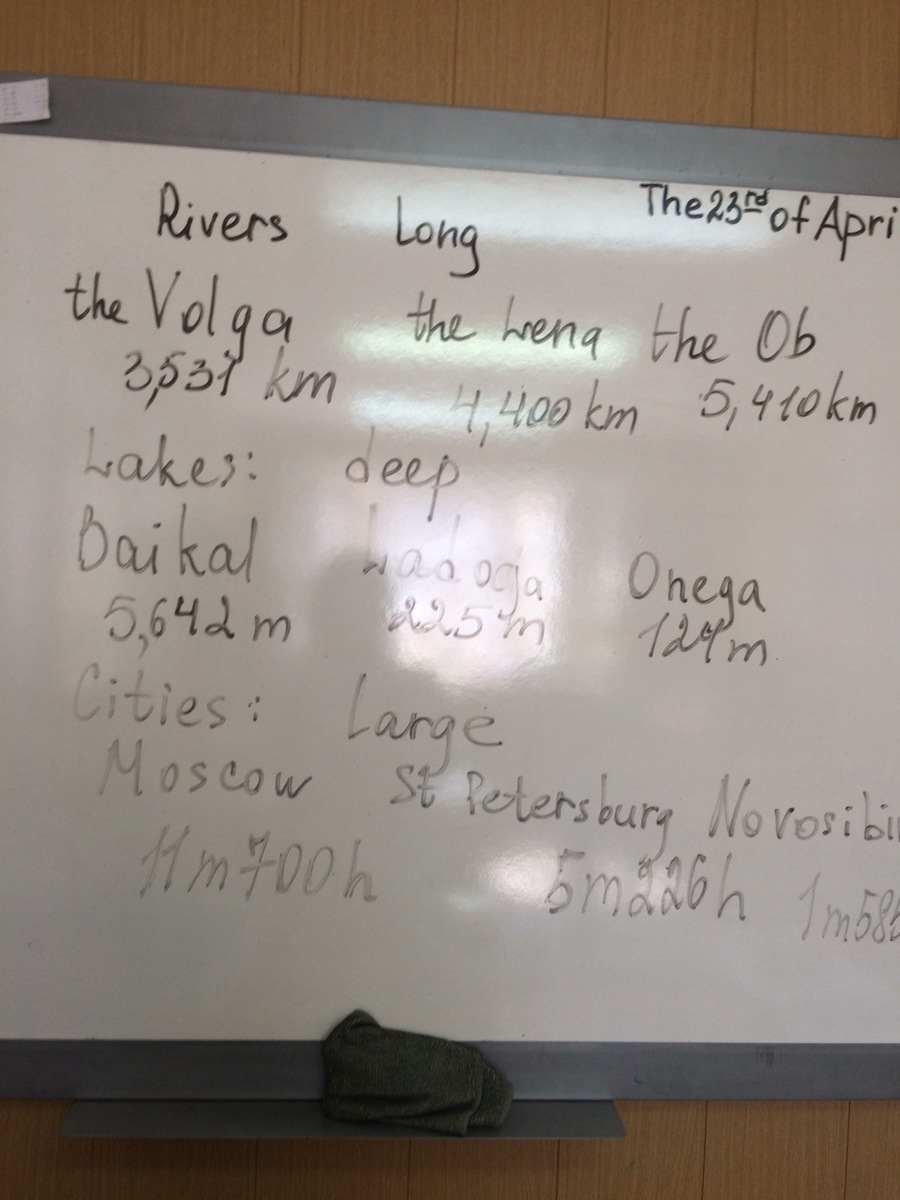 The 23rd of Apri
Rivers Long
the Volga the Lena the Ob
3,531 km 4,400 km 5,410 km
Lakes: deep
Baikal Ladoga Onega
5,642 m 225 m 127 m
Cities: Large
Moscow St Petersburg Novosibi
11 m 700 h 5 m 226 h 1 m 58